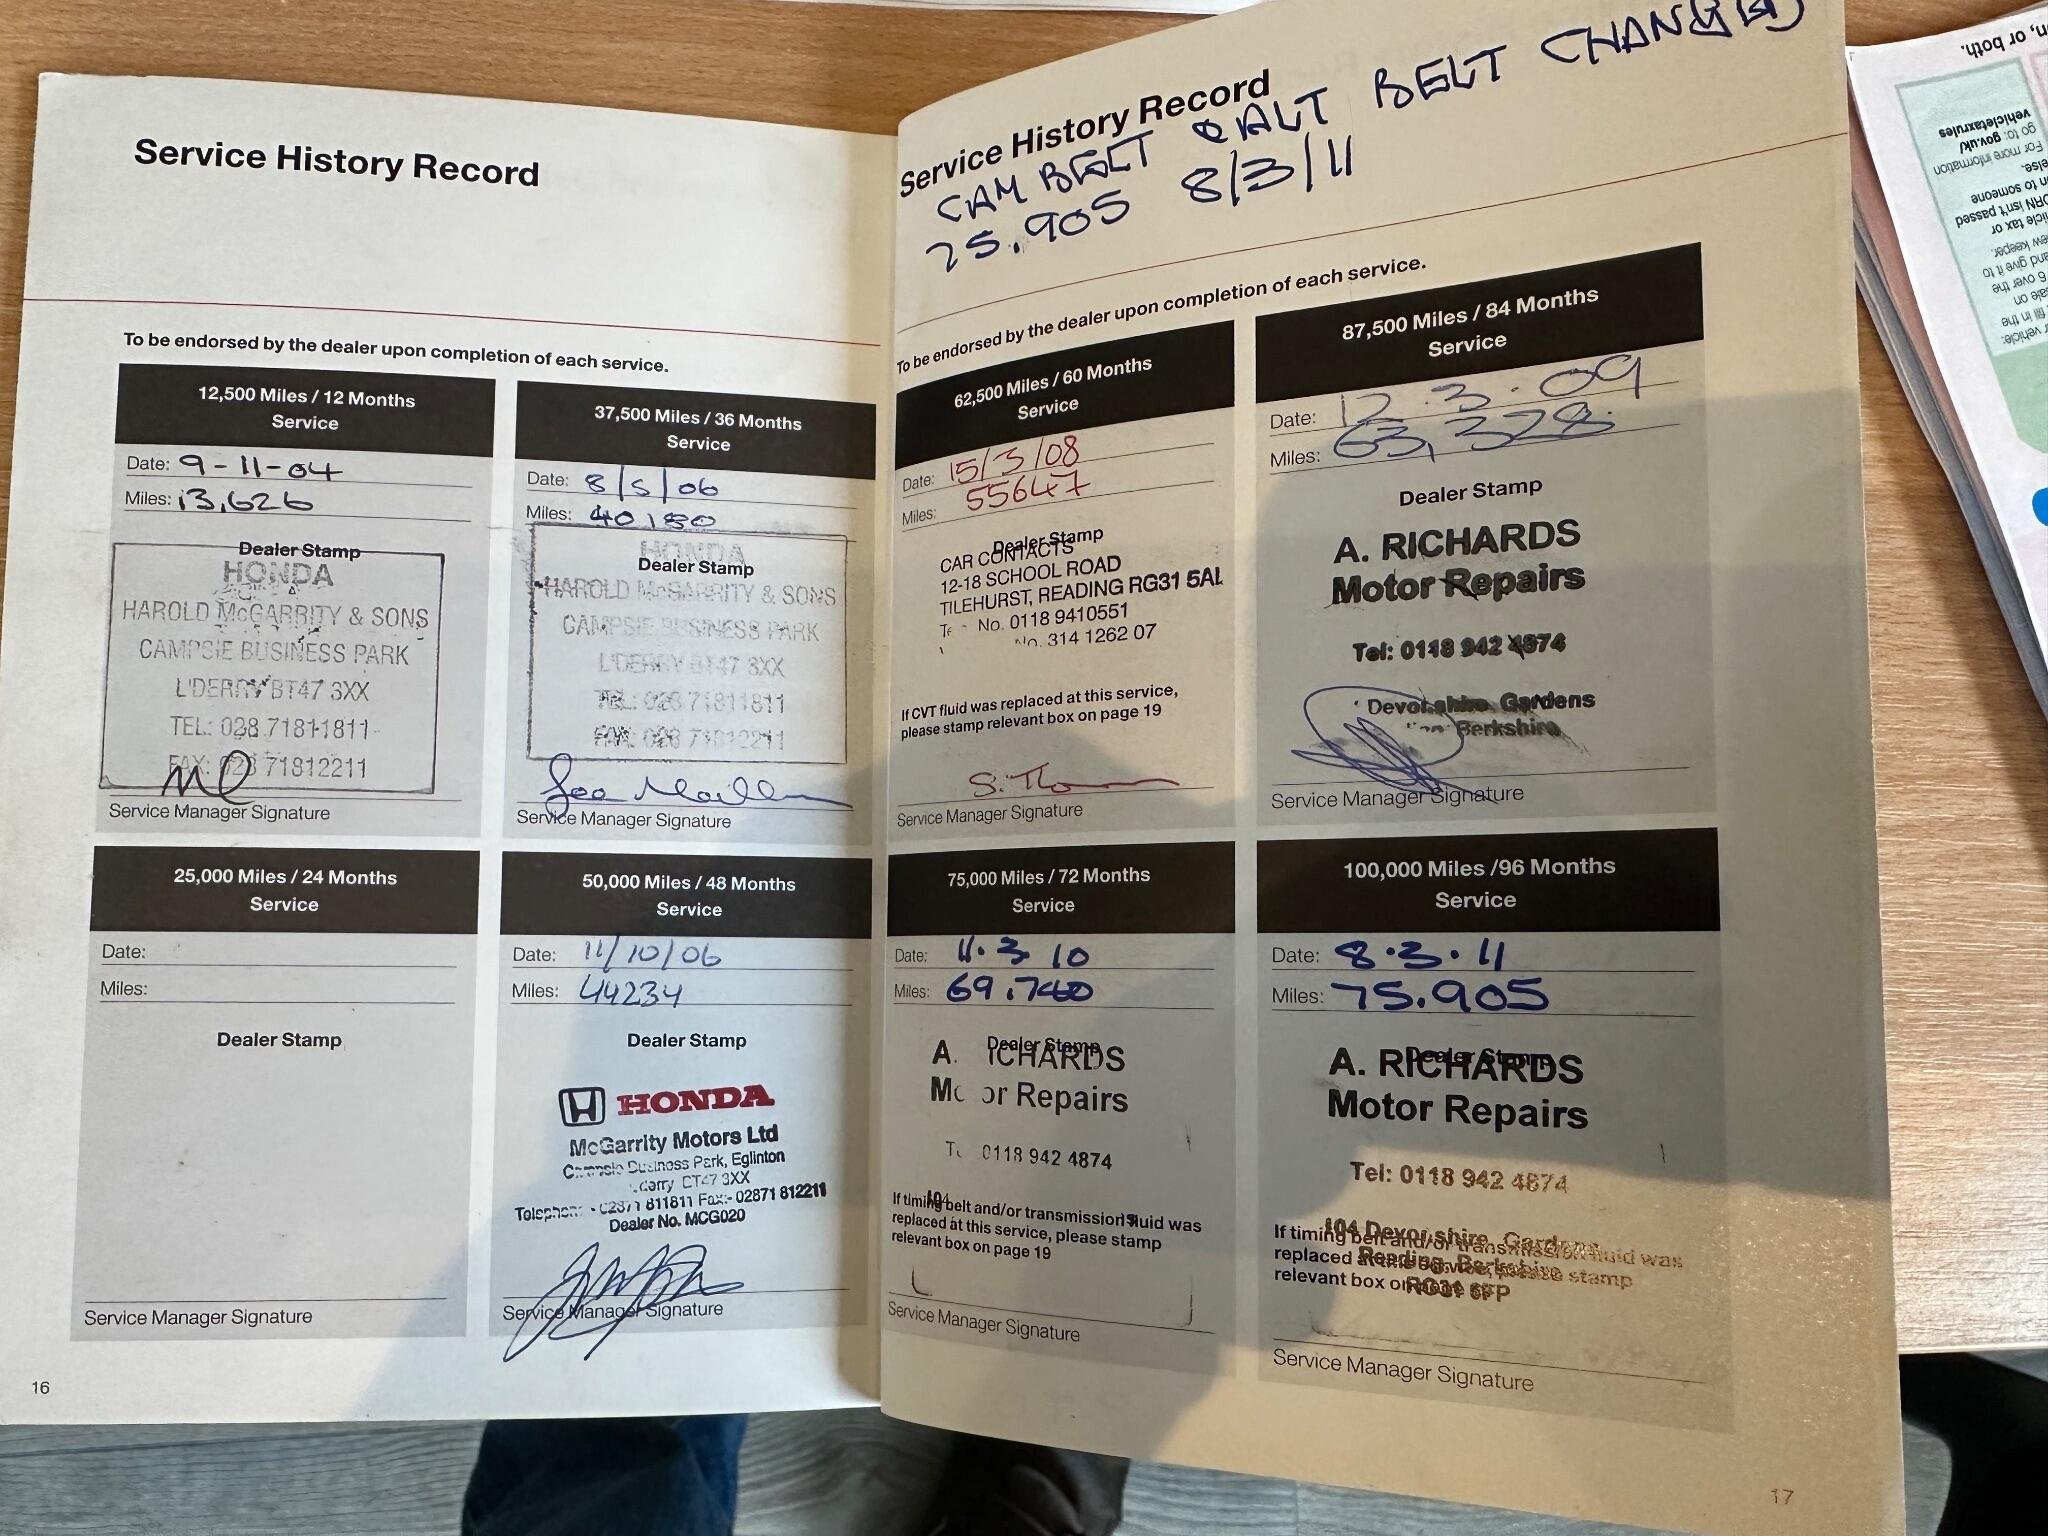 Service History Record
To be endorsed by the dealer upon completion of each service.
12,500 Miles / 12 Months
Service
Date: 9-11-04
Miles: 13,626
Dealer Stamp
HONDA
HAROLD McGARRITY & SONS
CAMPSIE BUSINESS PARK
L'DERRY BT47 3XX
TEL: 028 71811811
FAX: 028 71812211
Service Manager Signature
37,500 Miles / 36 Months
Service
Date: 8/5/06
Miles: 40180
HONDA
Dealer Stamp
HAROLD McGARRITY & SONS
CAMPSIE BUSINESS PARK
L'DERRY BT47 3XX
TEL: 028 71811811
FAX: 028 71812211
Service Manager Signature
25,000 Miles / 24 Months
Service
Date:
Miles:
Dealer Stamp
Service Manager Signature
50,000 Miles / 48 Months
Service
Date: 11/10/06
Miles: 44234
Dealer Stamp
HONDA
McGarrity Motors Ltd
Campsie Business Park, Eglinton
3XX
Telephone 02871 811811 Fax:- 02871 812211
Dealer No. MCG020
Service Manager Signature
16
Service History Record
CAM BELT & ALT BELT CHANGED
75.905 8/3/11
To be endorsed by the dealer upon completion of each service.
62,500 Miles / 60 Months
Service
Date: 15/3/08
Miles: 55647
Dealer Stamp
CAR CONTACTS
12-18 SCHOOL ROAD
TILEHURST, READING RG31 5AL
No. 0118 9410551
No. 314 1262 07
If CVT fluid was replaced at this service,
please stamp relevant box on page 19
Service Manager Signature
87,500 Miles / 84 Months
Service
Date: 12.3.09
Miles: 63,328
Dealer Stamp
A. RICHARDS
Motor Repairs
Tel: 0118 942 4874
Devonshire Gardens
Berkshire
Service Manager Signature
75,000 Miles / 72 Months
Service
Date: 11.3 10
Miles: 69.740
Dealer Stamp
A. RICHARDS
Motor Repairs
0118 942 4874
If timing belt and/or transmission fluid was
replaced at this service, please stamp
relevant box on page 19
Service Manager Signature
100,000 Miles /96 Months
Service
Date: 8.3.11
Miles: 75.905
Dealer Stamp
A. RICHARDS
Motor Repairs
Tel: 0118 942 4874
104 Devonshire Gardens
Reading, Berkshire
RG31 6FP
If timing belt and/or transmission fluid was
replaced at this service, please stamp
relevant box on
Service Manager Signature
17
n, or both.
vehicletaxrules
go to: gov.uk/
For more information
else.
n to someone
ORN isn't passed
icle tax or